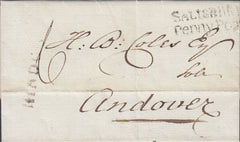 SALISBU
Penny Pos
H. B. Coles Esq
Andover